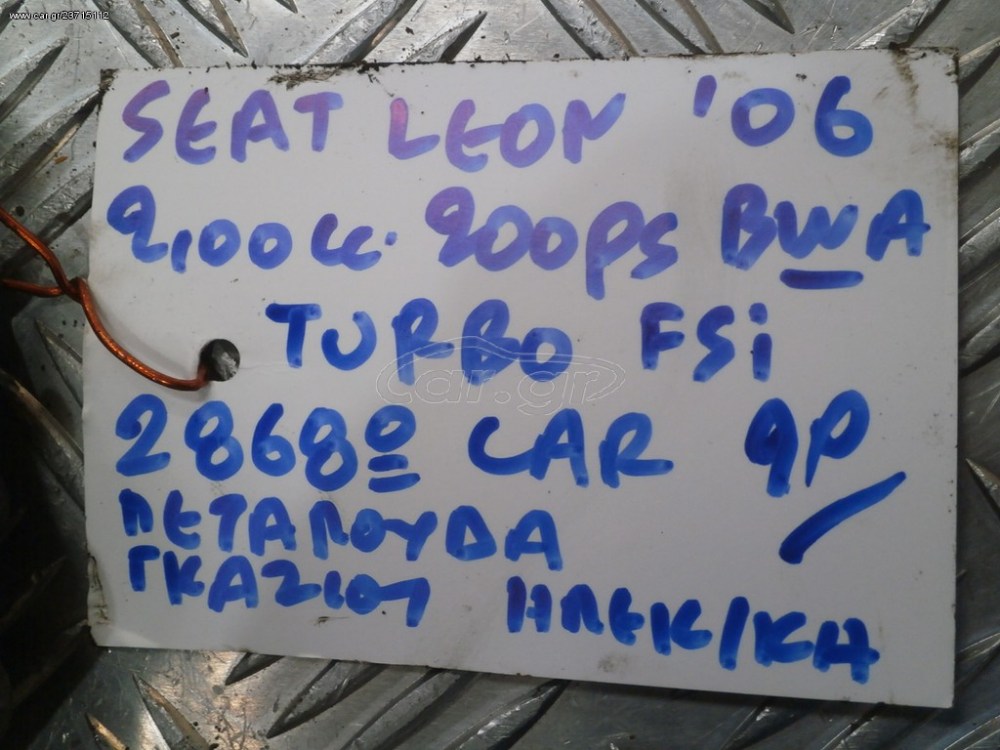 www.car.gr/23715112
SEAT LEON '06
2,00cc. 200PS BWA
TURBO FSi
2868º CAR gP
car.gr
ΠΕΤΑΛΟΥΔΑ
ΓΚΑΖΙΟΥ ΗΛΕΚ/ΚΗ